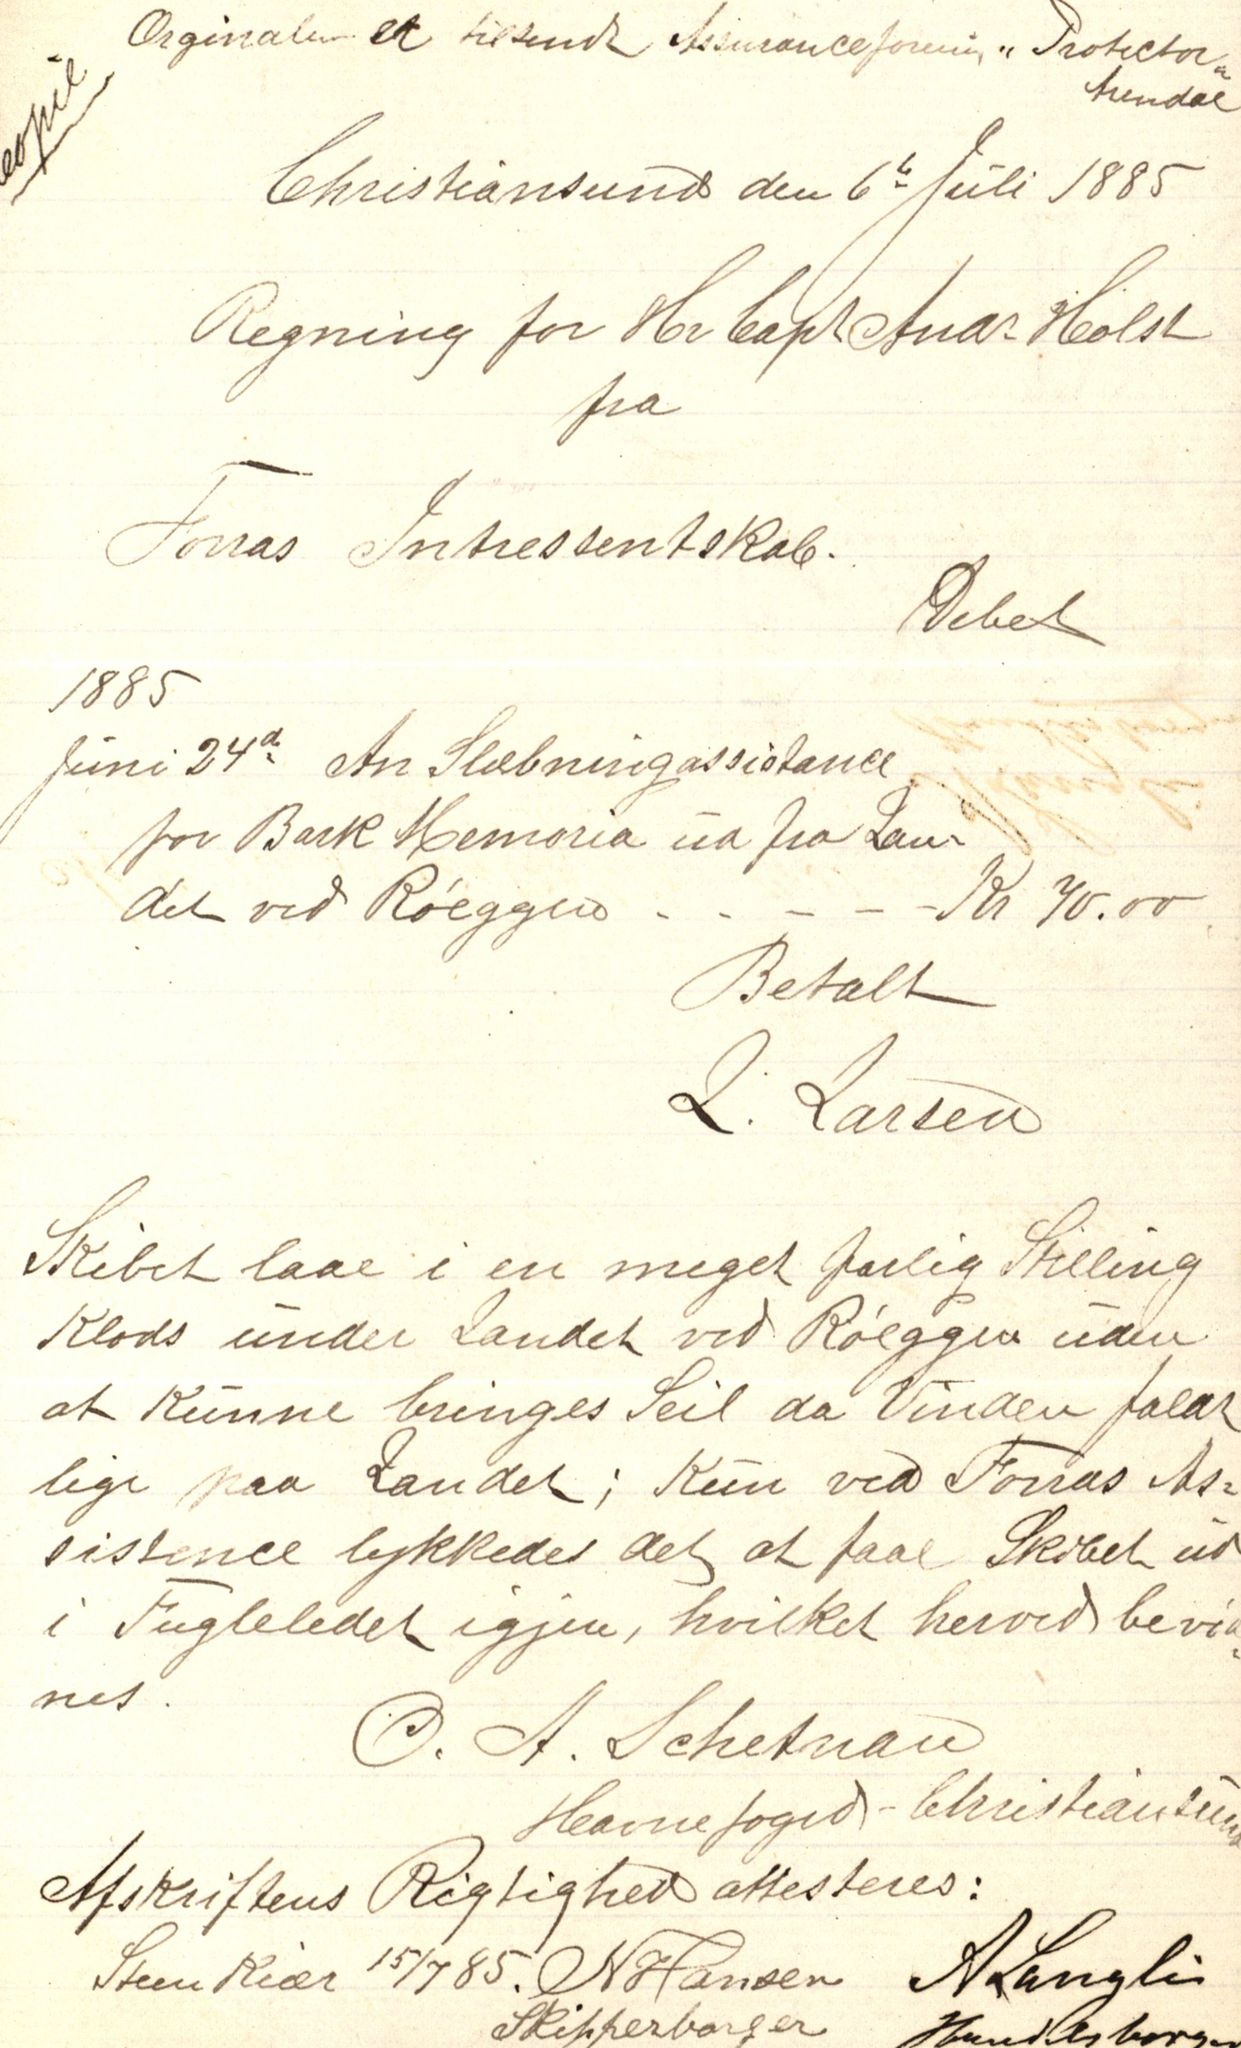 Orginalen er tilsendt Assuranceforening "Protector"
Arendal
copie
Christiansund den 6te Juli 1885
Regning for Hr Capt Andr Holst
fra
Forras Intressentskab.
Debet
1885
Juni 24d An Slæbningassistance
for Bark Memoria ud fra Lan-
det ved Röeggen - - - - - Kr 70.00
Betalt
L. Larsen
Skibet laae i en meget farlig Stilling
Klods under Landet ved Röeggen uden
at kunne bringes Seil da Vinden
lige paa Landet; kun ved Forras As-
sistence lykkedes det at faae Skibet ud
i Fugleledet igjen, hvilket herved bevid-
nes.
O. A. Schetnan
Havnefoged - Christiansund
Afskriftens Rigtighed attesteres:
Steenkiær 15/7 85. N Hansen A Langli
Skipperborger Handelsborger